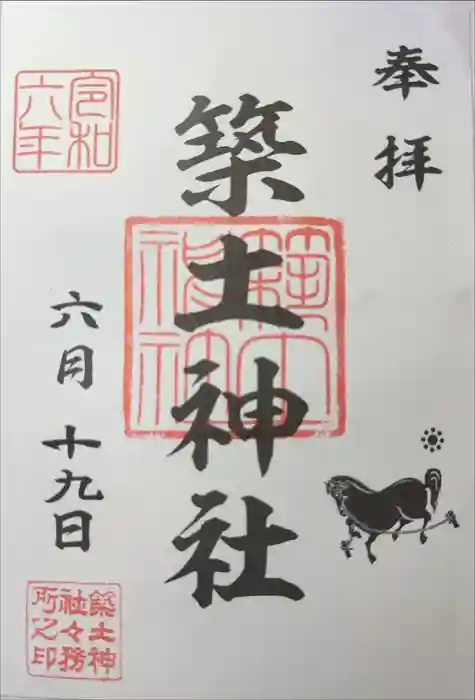 奉拝
築土神社
築土神社
令和
六年
六月十九日
築土神
社々務
所之印